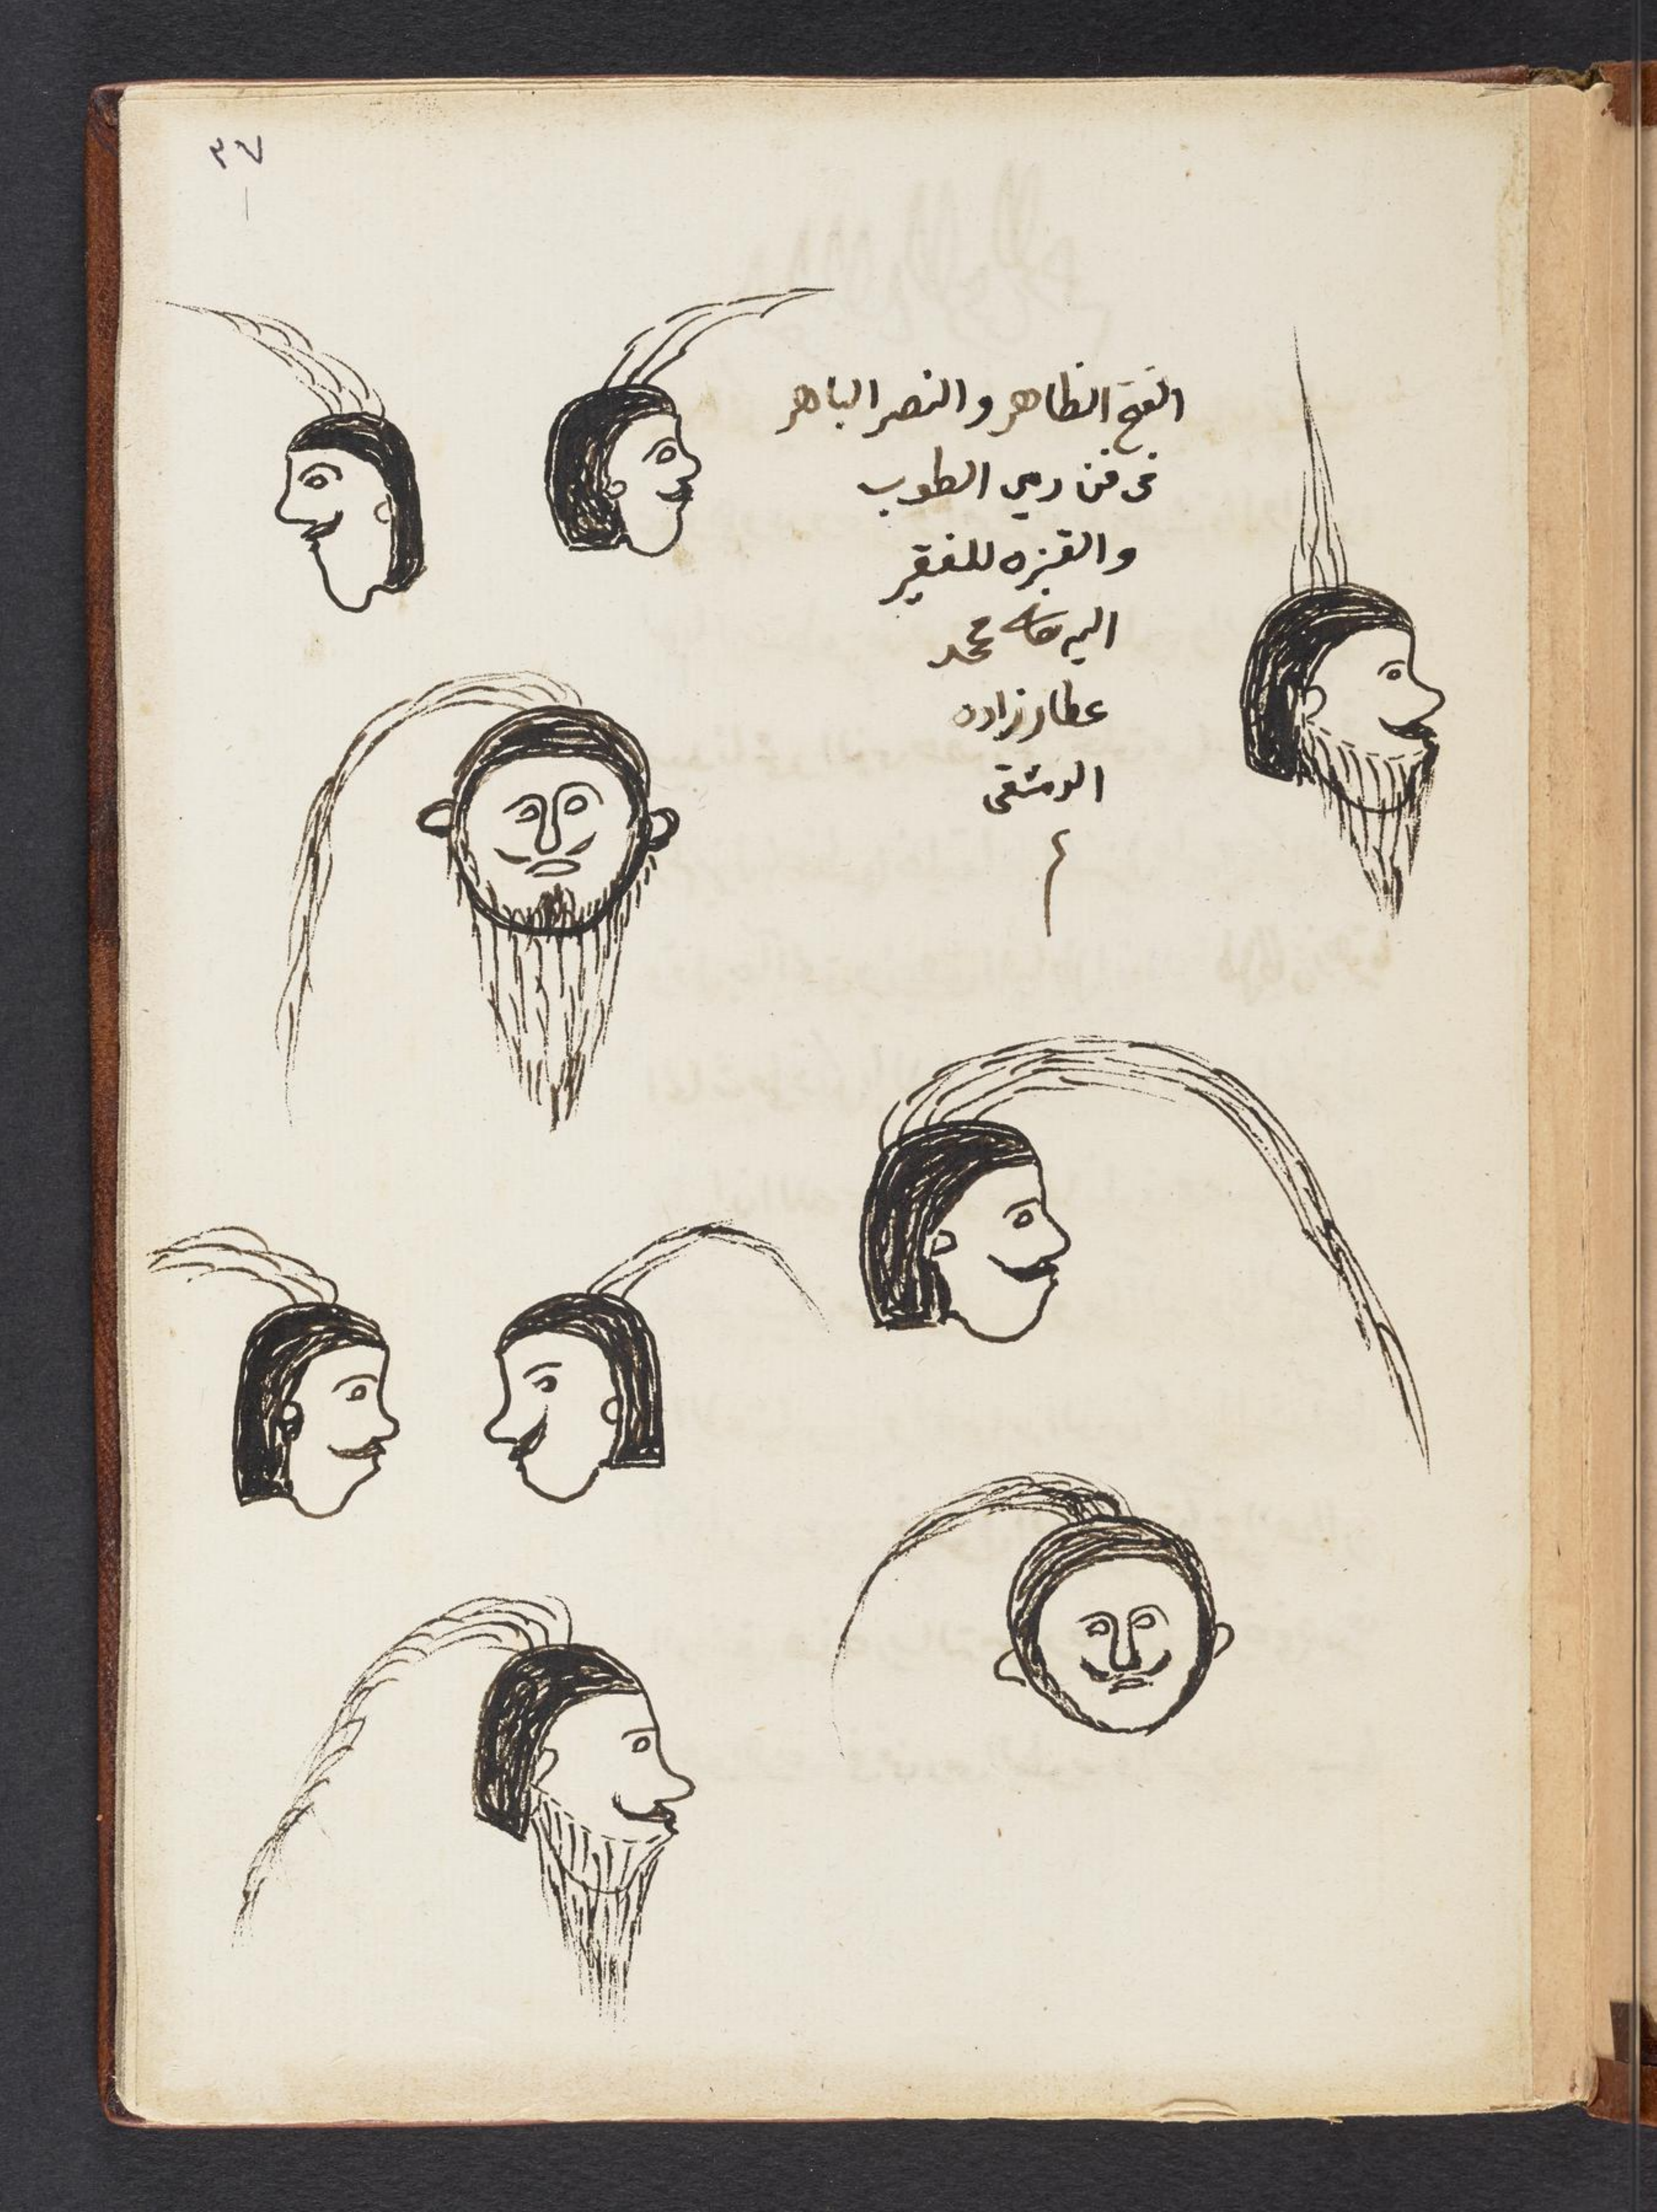 ٣٧
الفتح الظاهر والنصر الباهر
في فن رمي الطوب
والقنبره للفقير
اليه محمد
عطار زاده
الدمشقي